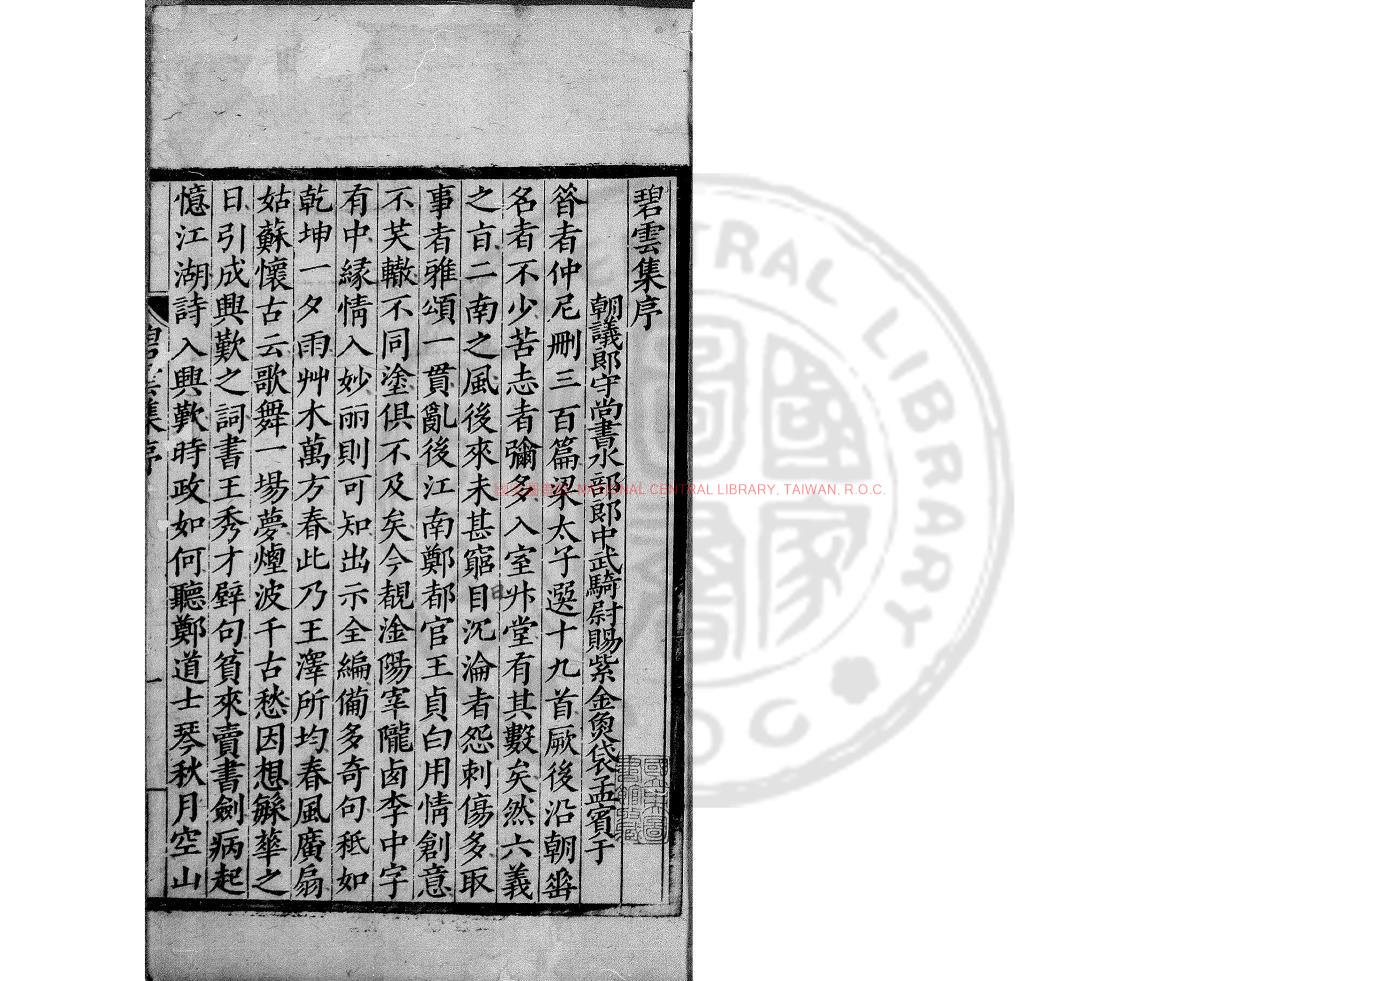 碧雲集序
朝議郎守尚書水部郎中武騎尉賜紫金魚袋孟賓于
昝者仲尼刪三百篇梁太子選十九首厥後沿朝垂
名者不少苦志者彌多入室升堂有其數矣然六義
之旨二南之風後來未甚窮目沉淪者怨刺傷多取
事者雅頌一貫亂後江南鄭都官王貞白用情創意
不芖轍不同塗俱不及矣今覩淦陽宰隴西李中字
有中緣情入妙丽則可知出示全編備多奇句秪如
乾坤一夕雨艸木萬方春此乃王澤所均春風廣扇
姑蘇懷古云歌舞一場夢煙波千古愁因想繇華之
日引成興歎之詞書王秀才壁句貧來賣書劍病起
憶江湖詩入興歎時政如何聽鄭道士琴秋月空山
碧雲集序
一
NATIONAL CENTRAL LIBRARY, TAIWAN, R.O.C.